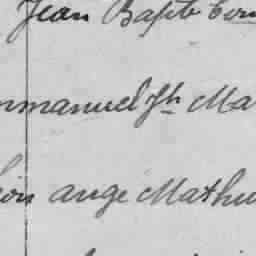 Jean Bapste
mmanuel Jh Ma
ange Mathu